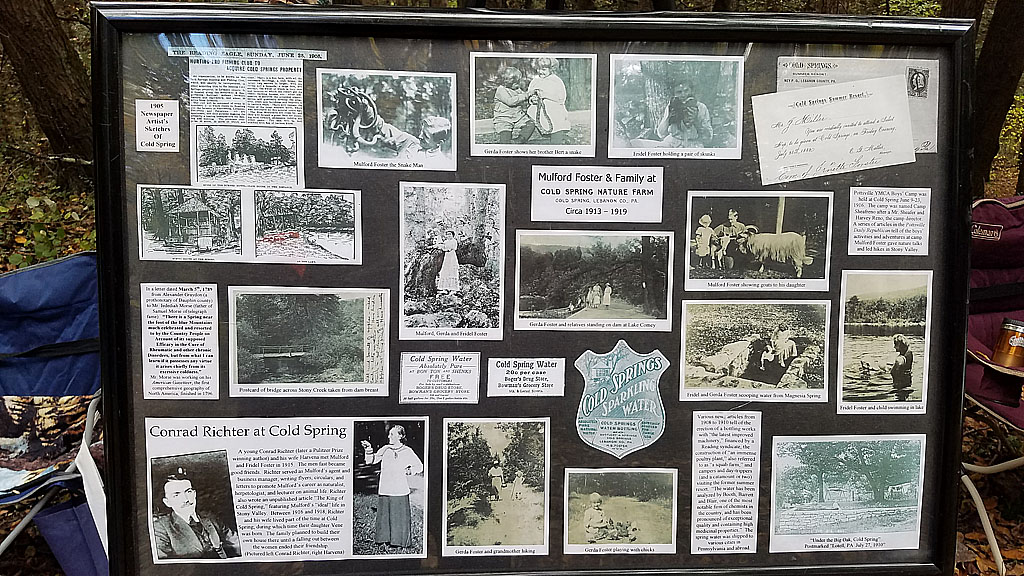 THE READING EAGLE, SUNDAY, JUNE 25, 1905.
HUNTING AND FISHING CLUB TO
ACQUIRE COLD SPRINGS PROPERTY
1905
Newspaper
Artist's
Sketches
Of
Cold Spring
Mulford Foster the Snake Man
Gerda Foster shows her brother Bert a snake
Fridel Foster holding a pair of skunks
COLD SPRINGS
SUMMER RESORT
Cold Springs Summer Resort
Mulford Foster & Family at
COLD SPRING NATURE FARM
COLD SPRING, LEBANON CO., PA.
Circa 1913 – 1919
Pottsville YMCA Boys' Camp was
held at Cold Spring June 9-23,
1916. The camp was named Camp
Sheafreno after a Mr. Sheafer and
Harvey Reno, the camp director.
A series of articles in the Pottsville
Daily Republican tell of the boys'
activities and adventures at camp.
Mulford Foster gave nature talks
and led hikes in Stony Valley.
Mulford, Gerda and Fridel Foster
Gerda Foster and relatives standing on dam at Lake Comey
Mulford Foster showing goats to his daughter
In a letter dated March 5th, 1789
from Alexander Graydon (a
prothonotary of Dauphin county)
to Mr. Jedediah Morse (father of
Samuel Morse of telegraph
fame): "There is a Spring near
the foot of the blue Mountains
much celebrated and resorted
to by the Country People on
Account of its supposed
Efficacy in the Cure of
Rheumatic and other chronic
Disorders, but from what I can
learn it possesses any virtue
it arises chiefly from its
excessive coldness."
Mr. Morse was working on his
American Gazetteer, the first
comprehensive geography of
North America, finished in 1796.
Postcard of bridge across Stony Creek taken from dam breast
Cold Spring Water
Absolutely Pure
Cold Spring Water
20c per case
Boger's Drug Store,
Bowman's Grocery Store
COLD SPRINGS
SPARKLING
WATER
COLD SPRINGS
Fridel and Gerda Foster scooping water from Magnesia Spring
Fridel Foster and child swimming in lake
Conrad Richter at Cold Spring
A young Conrad Richter (later a Pulitzer Prize
winning author) and his wife Harvena met Mulford
and Fridel Foster in 1915. The men fast became
good friends. Richter served as Mulford's agent and
business manager, writing flyers, circulars, and
letters to promote Mulford's career as naturalist,
herpetologist, and lecturer on animal life. Richter
also wrote an unpublished article "The King of
Cold Spring," featuring Mulford's "ideal" life in
Stony Valley. Between 1916 and 1918, Richter
and his wife lived part of the time at Cold
Spring, during which time their daughter Vene
was born. The family planned to build their
own house there until a falling out between
the women ended their friendship.
(Pictured left Conrad Richter, right Harvena)
Gerda Foster and grandmother hiking
Gerda Foster playing with chicks
Various news articles from
1908 to 1910 tell of the
erection of a bottling works
with "the latest improved
machinery," financed by a
Reading syndicate, the
construction of "an immense
poultry plant," also referred
to as "a squab farm," and
campers and day-trippers
(and a catamount or two)
visiting the former summer
resort. "The water has been
analyzed by Booth, Barrett
and Blair, one of the most
notable firm of chemists in
the country, and has been
pronounced of exceptional
quality and containing high
medicinal properties." The
spring water was shipped to
various cities in
Pennsylvania and abroad.
"Under the Big Oak, Cold Spring"
Postmarked "Lotell, PA July 27, 1910"
Coleman